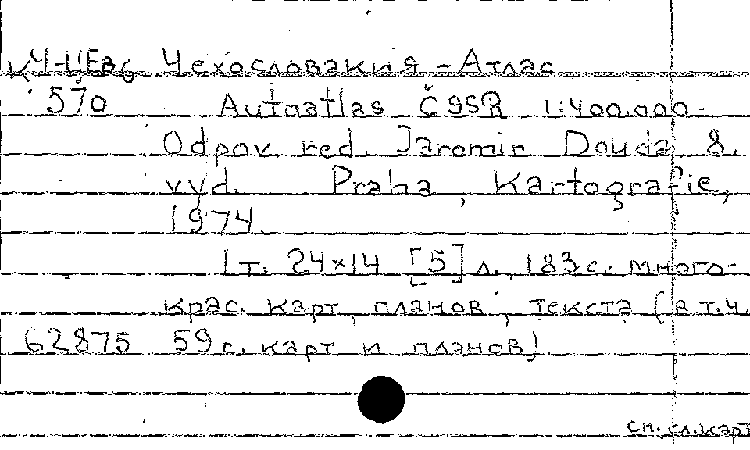 Ч-ЦЕвб Чехословакия - Атлас
570 Autoatlas ČSSR 1:400.000.
Odpov. red. Jaromir Douda 8.
vyd. Praha, Kartografie,
1974.
1 т. 24×14 [5] л., 183 с. много-
крас. карт, планов, текста (в т.ч.
62875 59 с. карт и планов)
см. сл. карт